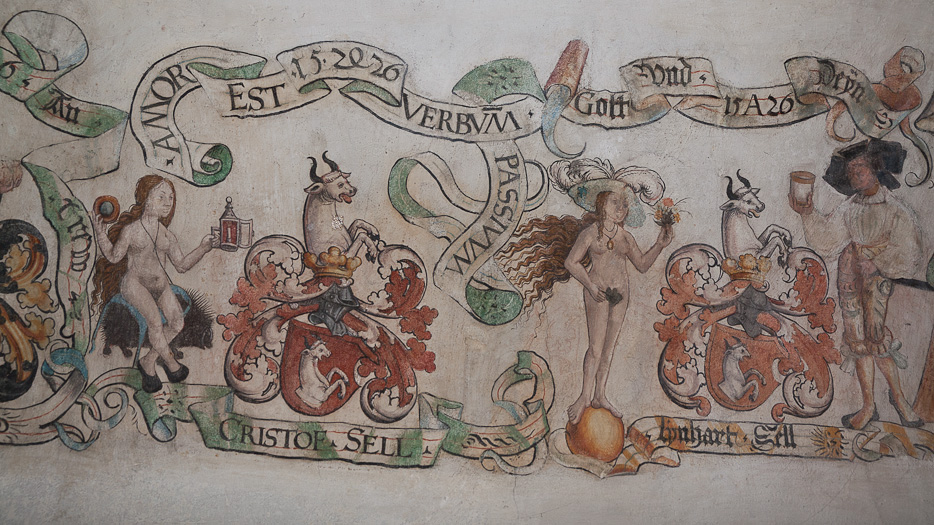 An
AMOR EST 15·20·26 VERBVM̄
PASSIVVM
Gott
Vnd
15A26
Deyn
CRISTOF · SELL
Lynhart · Sell